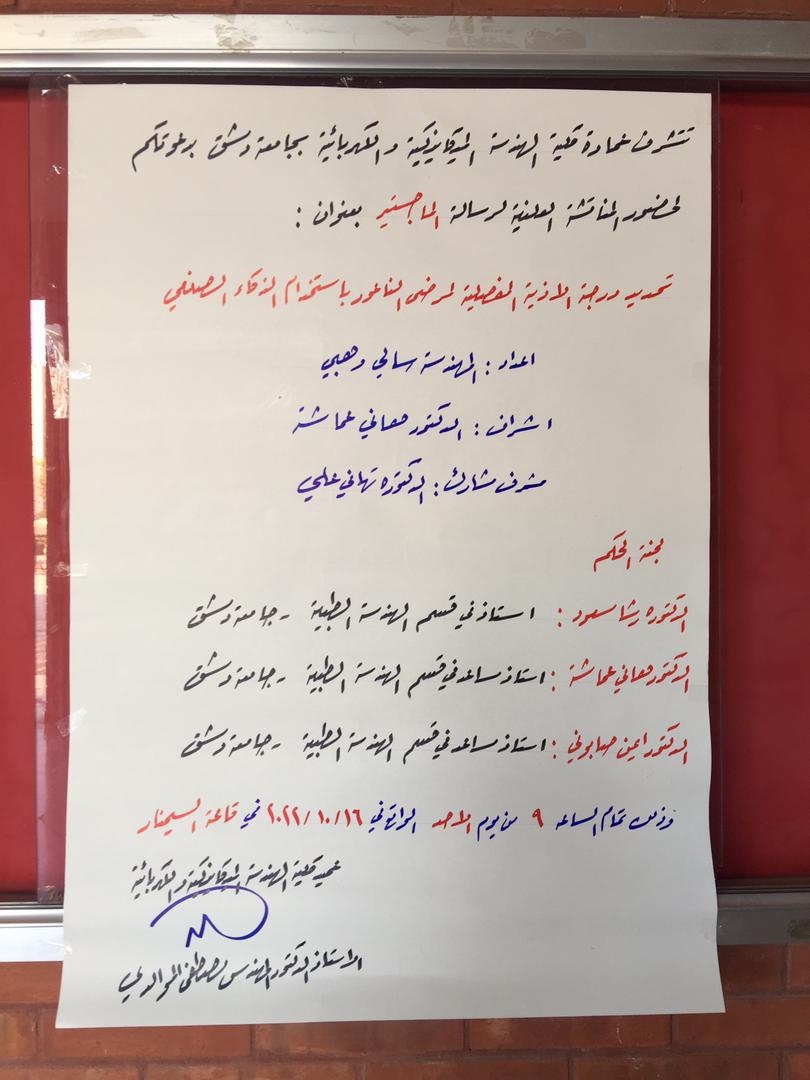 تتشرف عمادة كلية الهندسة الميكانيكية والكهربائية بجامعة دمشق بدعوتكم
لحضور المناقشة العلنية لرسالة الماجستير بعنوان :
تحديد درجة الاذية المفصلية لمرضى الناعور باستخدام الذكاء الصنعي
اعداد : المهندسة سالي وهبي
اشراف : الدكتور هاني عماشة
مشرف مشارك : الدكتورة تهاني علي
لجنة الحكم
الدكتورة رشا سعود : استاذ في قسم الهندسة الطبية - جامعة دمشق
الدكتور هاني عماشة : استاذ مساعد في قسم الهندسة الطبية - جامعة دمشق
الدكتور ايمن صابوني : استاذ مساعد في قسم الهندسة الطبية - جامعة دمشق
وذلك تمام الساعه ٩ من يوم الاحد الواقع في ٢٠٢٢/١٠/١٦ في قاعة السيمنار
عميد كلية الهندسة الميكانيكية والكهربائية
الاستاذ الدكتور المهندس مصطفى الموالدي